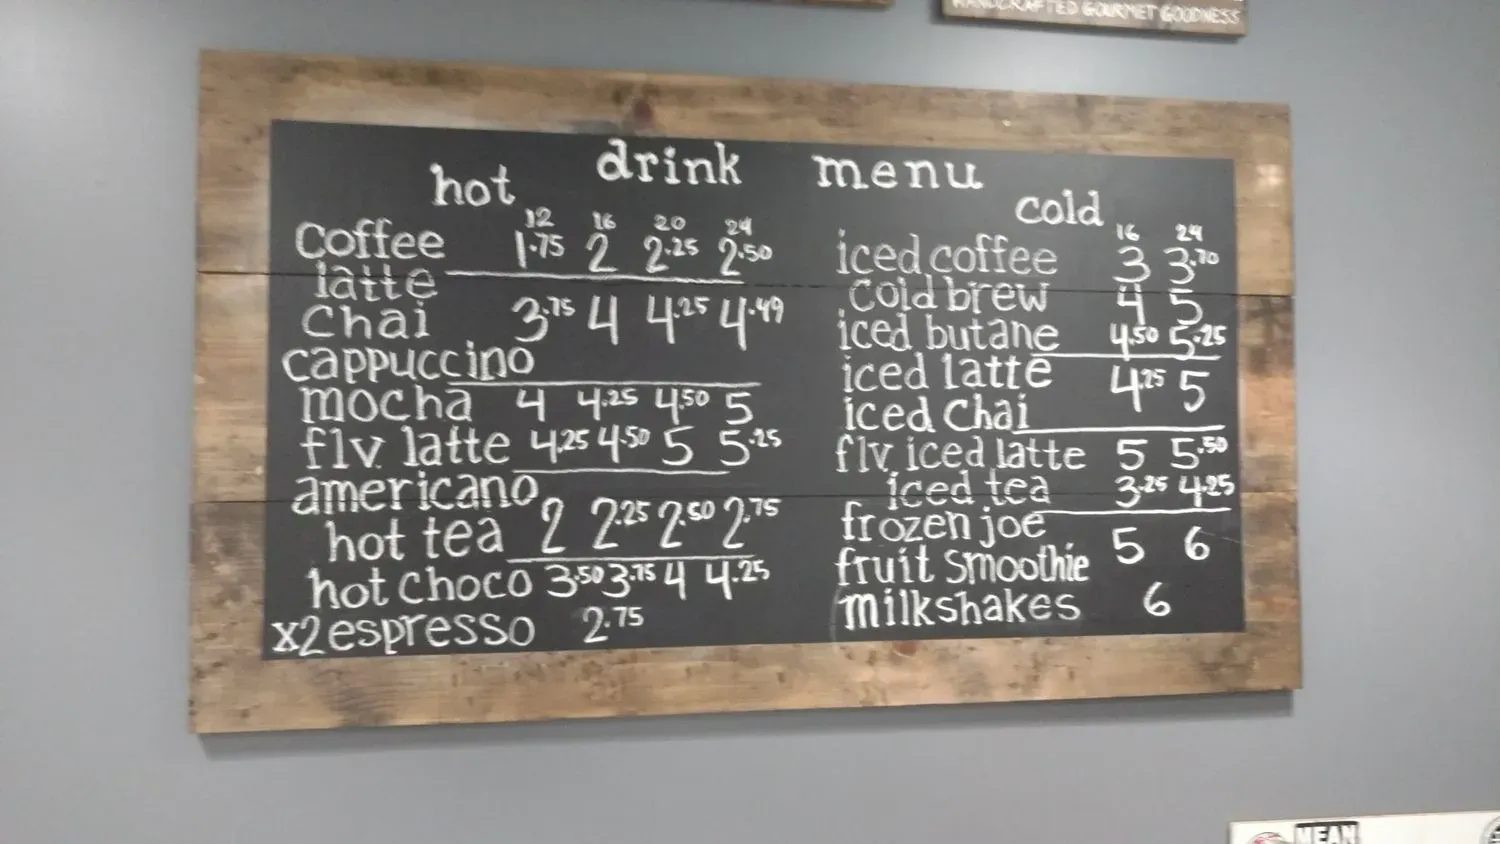 HANDCRAFTED GOURMET GOODNESS
drink menu
hot
12 16 20 24
coffee 1.75 2 2.25 2.50
latte
chai 3.75 4 4.25 4.49
cappuccino
mocha 4 4.25 4.50 5
flv. latte 4.25 4.50 5 5.25
americano
hot tea 2 2.25 2.50 2.75
hot choco 3.50 3.75 4 4.25
x2 espresso 2.75
cold
16 24
iced coffee 3 3.70
cold brew 4 5
iced butane 4.50 5.25
iced latte 4.25 5
iced chai
flv. iced latte 5 5.50
iced tea 3.25 4.25
frozen joe 5 6
fruit smoothie
milkshakes 6
MEAN